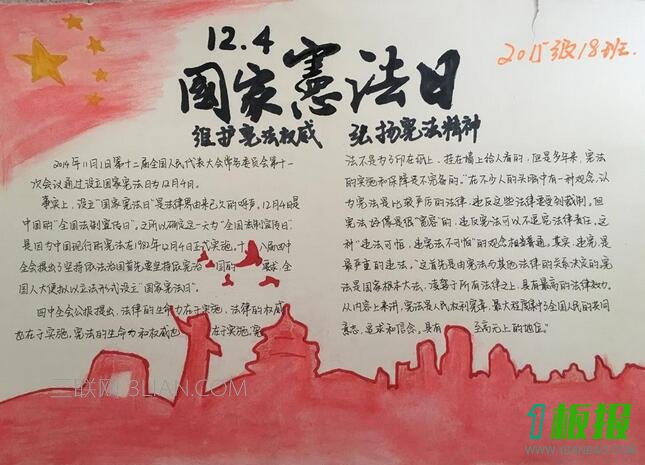 12.4
国家憲法日
2015级18班.
维护宪法权威 弘扬宪法精神
2014年11月1日第十二届全国人民代表大会常务委员会第十一
次会议通过设立国家宪法日为12月4日。
事实上,设立"国家宪法日"是法律界由来已久的呼声,12月4日是
中国的"全国法制宣传日"。之所以确定这一天为"全国法制宣传日",
是因为中国现行的宪法在1982年12月4日正式实施。十八届四中
全会提出了坚持依法治国首先要坚持依宪 国的 要求 全
国人大便拟以立法形式设立"国家宪法日"。
四中全会公报提出,法律的生命力在于实施,法律的权威
也在于实施,宪法的生命力和权威也 在于实施,宪
法不是为了印在纸上、挂在墙上给人看的,但是多年来,宪法
的实施和保障是不完备的。"在不少人的头脑中有一种观念,认
为宪法是比较严厉的法律,违反这些法律要受到裁制,但
宪法好像是很"宽容"的,违反宪法可以不追究法律责任。这
种"违法可怕,违宪法不可怕"的观念相当普遍。其实,违宪是
最严重的违法。"这首先是由宪法与其他法律的关系决定的,宪
法是国家根本大法,凌驾于所有法律之上,具有最高的法律效力。
从内容上来讲,宪法是人民权利宪章,最大程度集中了全国人民的共同
意志、追求和信念,具有 至高无上的地位。"
三联网 3LIAN.COM
1板报